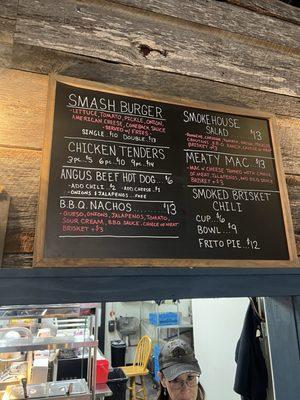 SMASH BURGER
- LETTUCE, TOMATO, PICKLE, ONION,
AMERICAN CHEESE, COMEBACK SAUCE
- SERVED W/ FRIES
SINGLE $10 DOUBLE $13
CHICKEN TENDERS
3pc. $5 6pc. $10 9pc. $14
ANGUS BEEF HOT DOG $6
- ADD CHILI $2 - ADD CHEESE $1
- ONIONS & JALAPENOS ... FREE
B.B.Q. NACHOS $13
- QUESO, ONIONS, JALAPENOS, TOMATO,
SOUR CREAM, B.B.Q. SAUCE, CHOICE OF MEAT
BRISKET + $3
SMOKEHOUSE
SALAD $13
BRISKET + $3
MEATY MAC $13
- MAC & CHEESE TOPPED WITH CHOICE
OF MEAT, JALAPENOS, AND B.B.Q. SAUCE
BRISKET + $3
SMOKED BRISKET
CHILI
CUP $6
BOWL $9
FRITO PIE $12